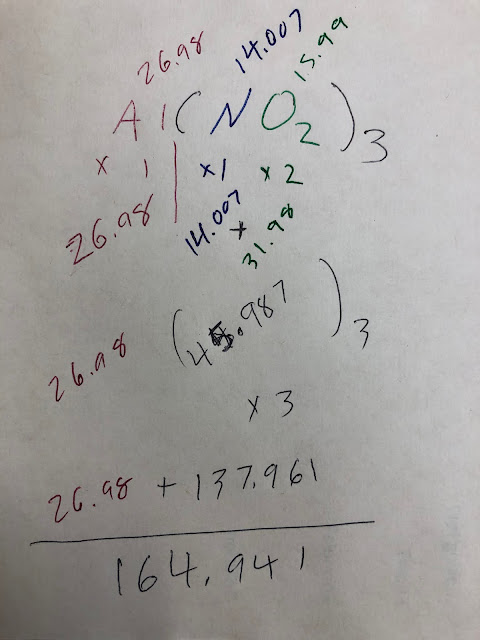 26.98 14.007 15.99
Al(NO2)3
x 1 | x1 x 2
26.98 14.007 + 31.98
26.98 (45.987)3
x 3
26.98 + 137.961
164.941